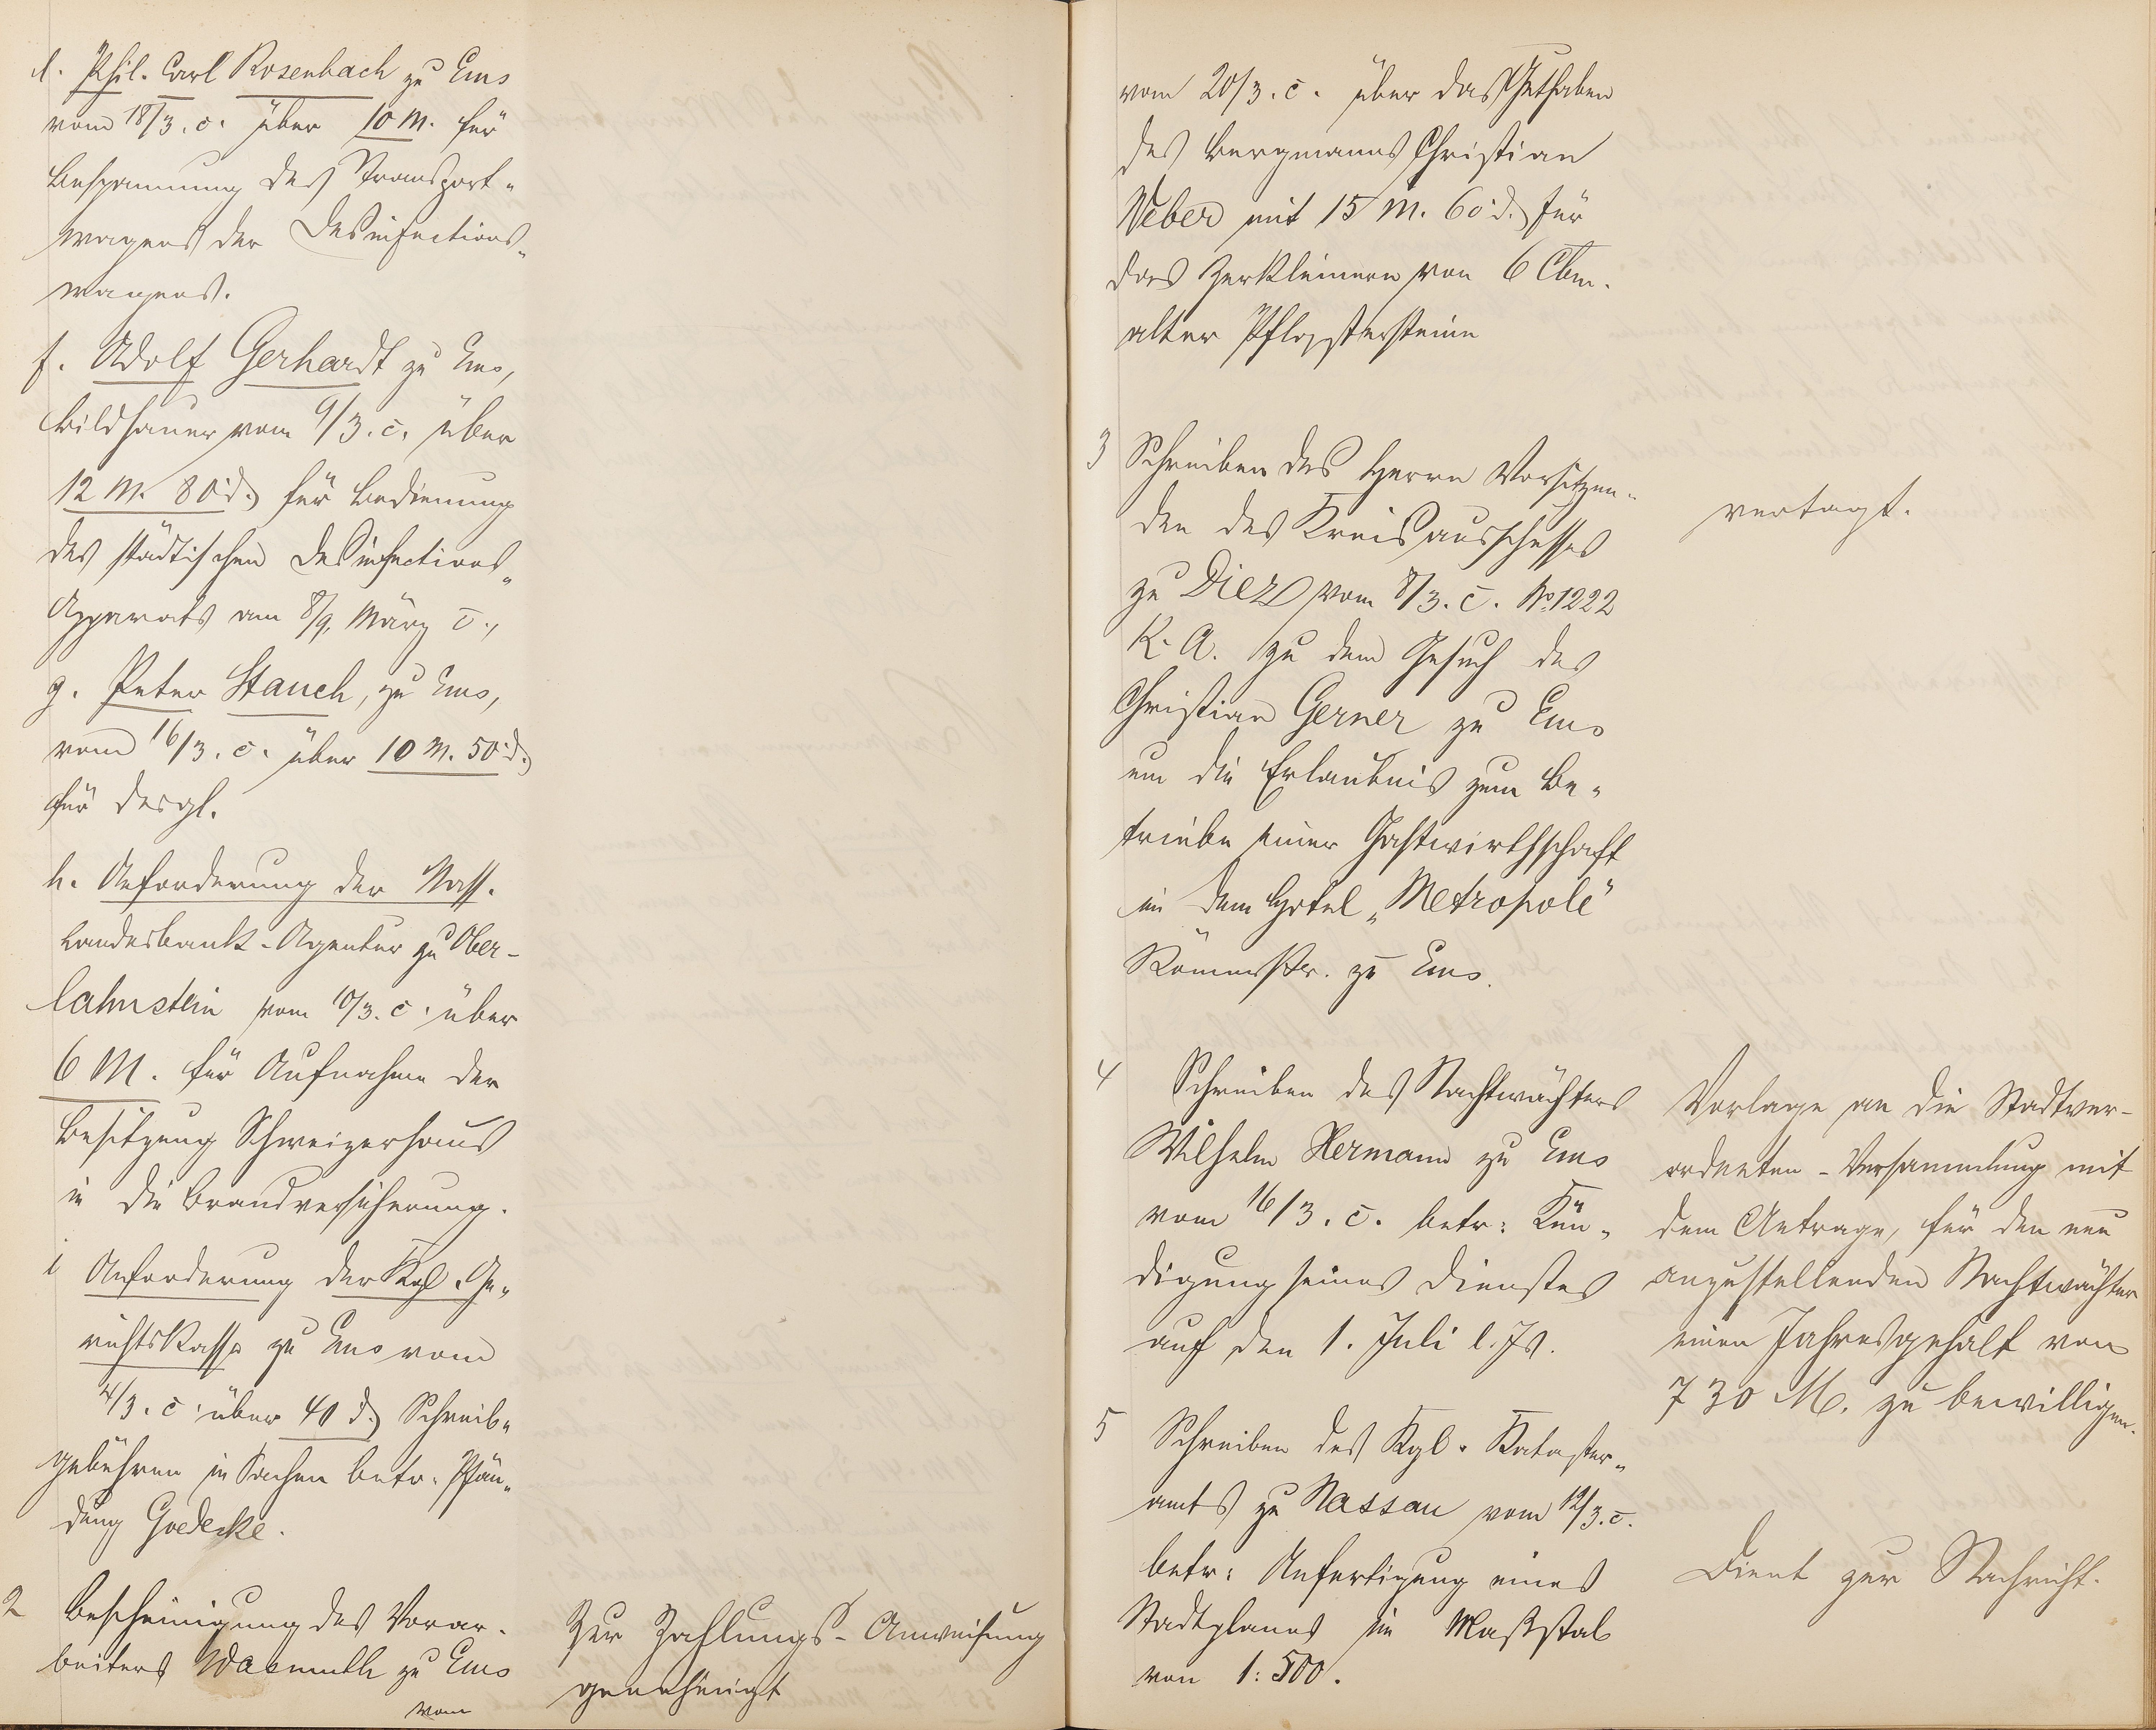 d. Phil. Carl Rosenbach zu Ems
vom 18/3. c. über 10 M. für
Bespannung des Transport-
wagens der Desinfections-
wagens.
f. Adolf Gerhardt zu Ems,
Bildhauer vom 9/3. c. über
12 M. 80 d. für Bedienung
des städtischen Desinfections-
Apparats am 8/9. März c.,
g. Peter Stauch, zu Ems,
vom 16/3. c. über 10 M. 50 d.
für desgl.
h. Anforderung der Nass.
Landesbank-Agentur zu Ober-
lahnstein vom 10/3. c. über
6 M. für Aufnahme der
Besitzung Schweizerhaus
in die Brandversicherung.
i Anforderung der Kgl. Ge-
richtskasse zu Ems vom
4/3. c. über 40 d. Schreib-
gebühren in Sachen betr. Pfän-
dung Goedecke.
2 Bescheinigung des Vorar-
beiters Wasmuth zu Ems
vom
Zur Zahlungs-Anweisung
genehmigt
vom 20/3. c. über das Guthaben
des Bergmanns Christian
Weber mit 15 M. 60 d. für
das Zerkleinern von 6 Cbm.
alter Pflastersteine
3 Schreiben des Herrn Vorsitzen-
den des Kreisausschusses
zu Diez vom 8/3. c. No. 1222
K. A. zu dem Gesuch des
Christian Gerner zu Ems
um die Erlaubnis zum Be-
triebe einer Gastwirthschaft
in dem Hotel „Metropole"
Römerstr. zu Ems.
vertagt.
4 Schreiben des Nachtwächters
Wilhelm Hermann zu Ems
vom 16/3. c. betr: Kün-
digung seines Dienstes
auf den 1. Juli l. Js.
Vorlage an die Stadtver-
ordneten-Versammlung mit
dem Antrage, für den neu
anzustellenden Nachtwächter
einen Jahresgehalt von
730 M. zu bewilligen.
5 Schreiben des Kgl. Kataster-
amts zu Nassau vom 12/3. c.
betr: Anfertigung eines
Stadtplanes im Maßstab
von 1:500.
Dient zur Nachricht.